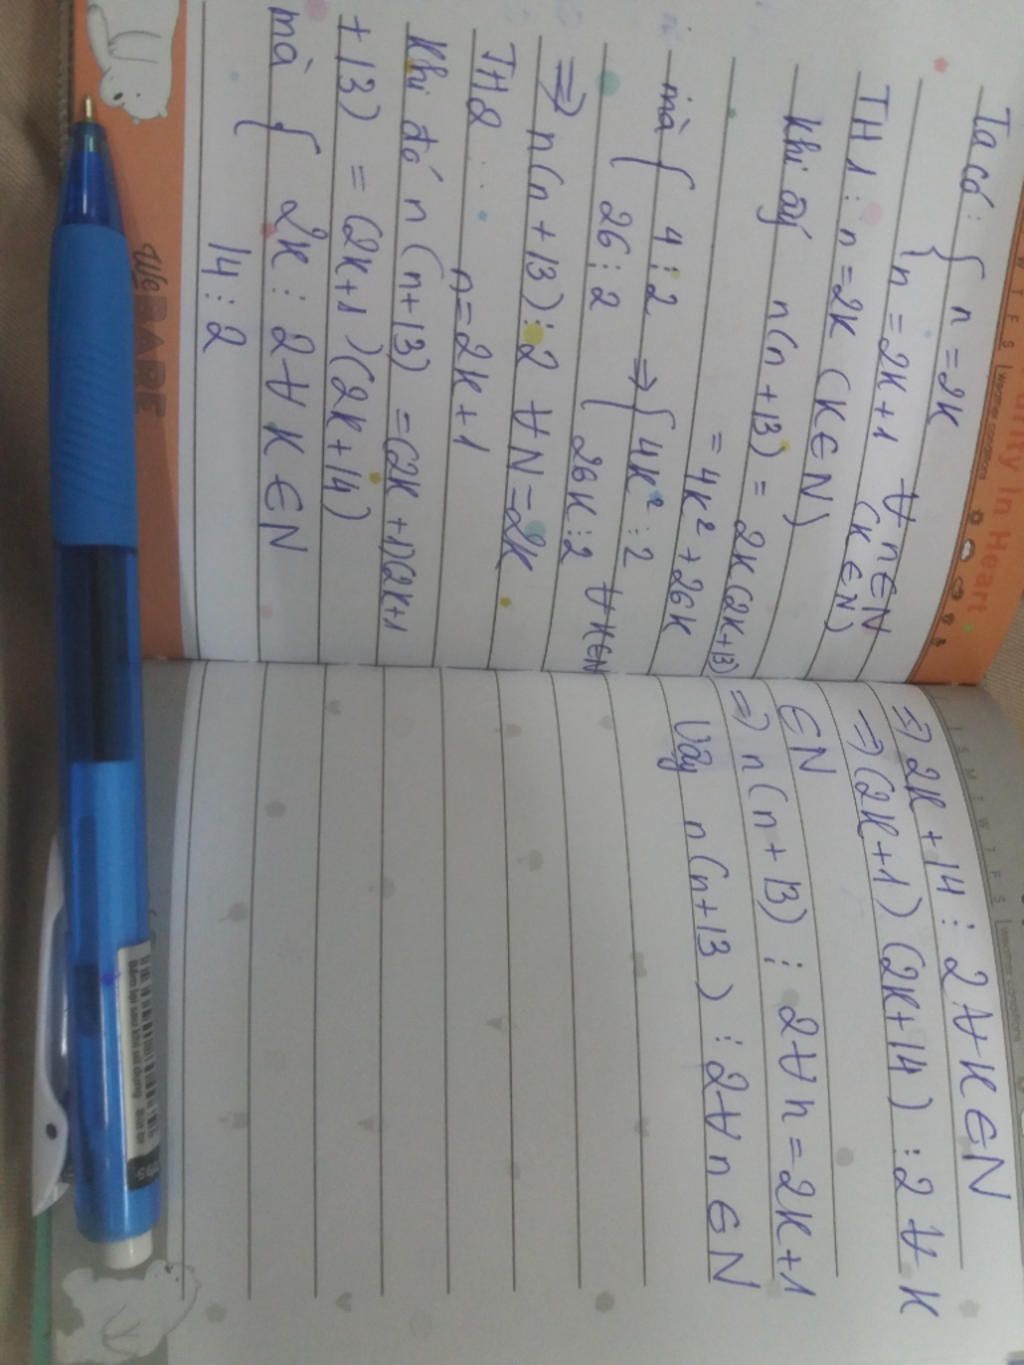 Ta có: { n = 2K
{ n = 2K+1 ∀ n ∈ N
(K ∈ N)
TH1: n = 2K (K ∈ N)
Khi ấy n(n+13) = 2K(2K+13)
= 4K² + 26K
mà { 4 ⋮ 2 ⇒ { 4K² ⋮ 2
{ 26 ⋮ 2 { 26K ⋮ 2 ∀ K∈N
⇒ n(n+13) ⋮ 2 ∀ N = 2K
TH2: n = 2K+1
Khi đó n(n+13) = (2K+1)(2K+1
+13) = (2K+1)(2K+14)
mà { 2K ⋮ 2 ∀ K ∈ N
14 ⋮ 2
WeBARE
⇒ 2K + 14 ⋮ 2 ∀ K ∈ N
⇒ (2K+1)(2K+14) ⋮ 2 ∀ K
∈ N
⇒ n(n+13) ⋮ 2 ∀ n = 2K+1
Vậy n(n+13) ⋮ 2 ∀ n ∈ N